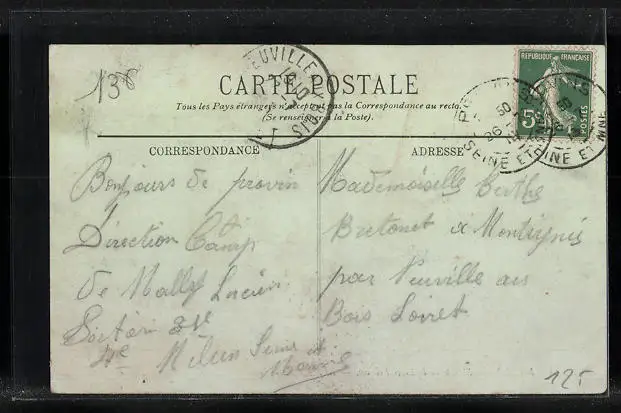 138
CARTE POSTALE
Tous les Pays étrangers n'acceptent pas la Correspondance au recto.
(Se renseigner à la Poste).
RÉPUBLIQUE FRANÇAISE
5c POSTES
NEUVILLE
BOIS
SEINE ET
SEINE ET MNE
CORRESPONDANCE
ADRESSE
Bonjours de provin
Direction Camp
de Lucien
31e
4e Melun Seine et
Marne
Mademoiselle Berthe
Bretonet à Montigni
par Neuville aus
Bois Loiret
125